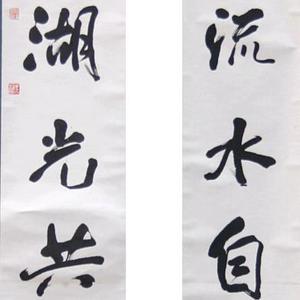 流水自
湖光共